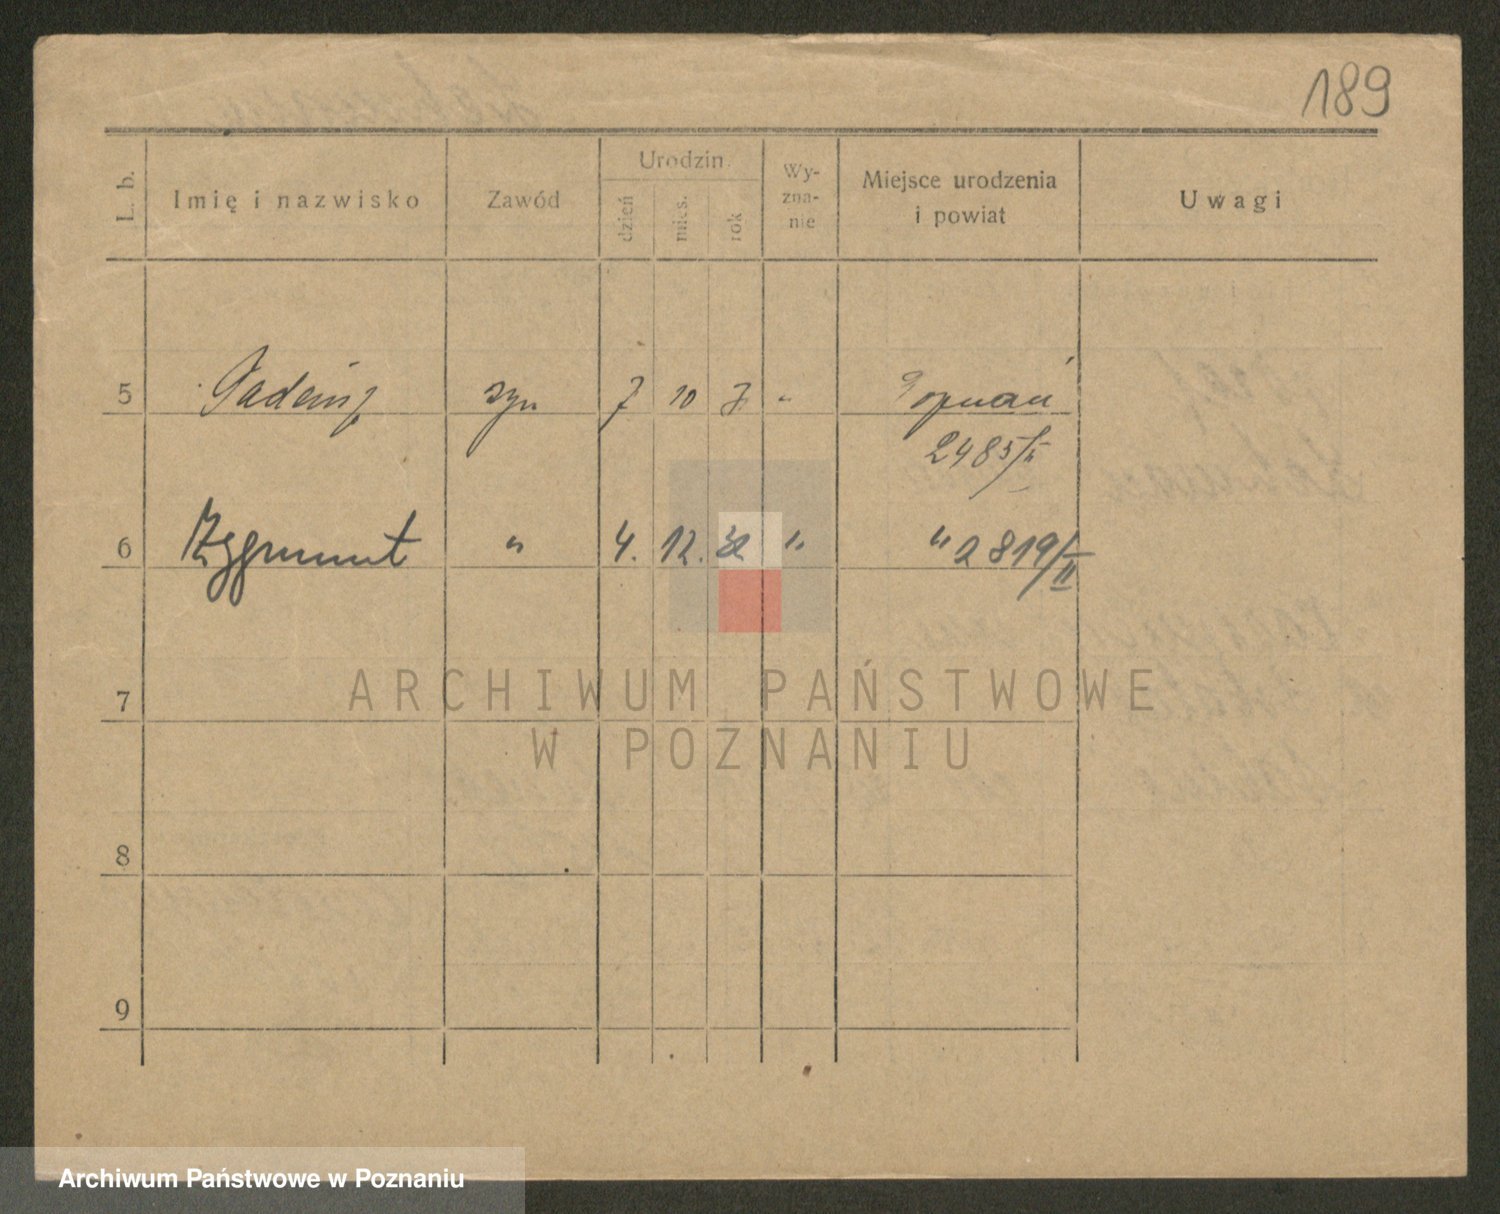 189
L. b.
Imię i nazwisko
Zawód
Urodzin.
dzień
mies.
rok
Wy-
zna-
nie
Miejsce urodzenia
i powiat
Uwagi
5 Tadeusz syn 7 10 " Poznań
2485/II
6 Zygmunt " 4. 12. 32 " " 2819/II
7
8
9
ARCHIWUM PAŃSTWOWE
W POZNANIU
Archiwum Państwowe w Poznaniu